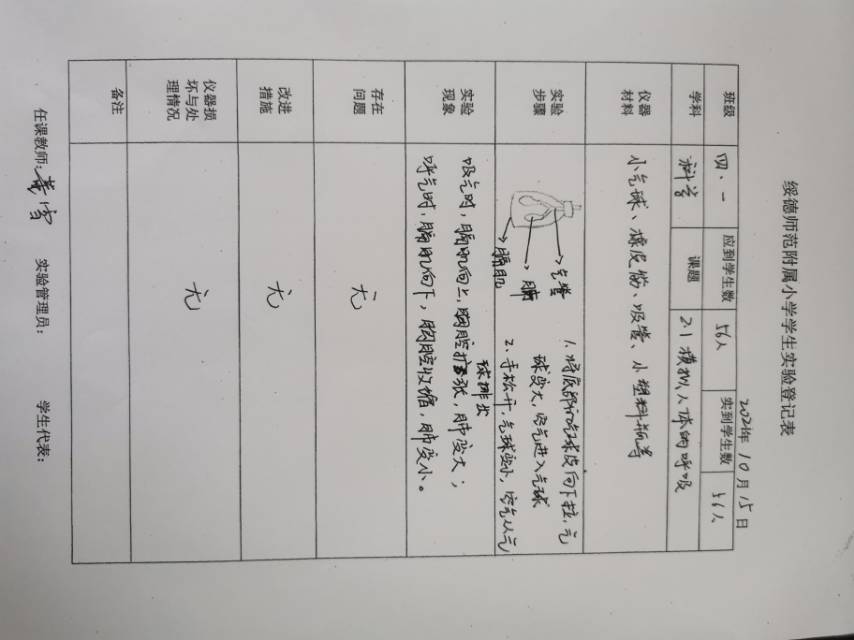 绥德师范附属小学学生实验登记表
2021年10月15日
班级 四.一 应到学生数 56人 实到学生数 56人
学科 科学 课题 2.1模拟人体的呼吸
仪器材料 小气球、橡皮筋、吸管、小塑料瓶等
实验步骤
→气管
→肺
→膈肌
1.将底部的气球皮向下拉,气
球变大,空气进入气球
2.手松开,气球变小,空气从气
球排出
实验现象
吸气时,膈肌向上,胸腔扩张,肺变大;
呼气时,膈肌向下,胸腔收缩,肺变小。
存在问题 无
改进措施 无
仪器损坏与处理情况 无
备注
任课教师: 实验管理员: 学生代表: